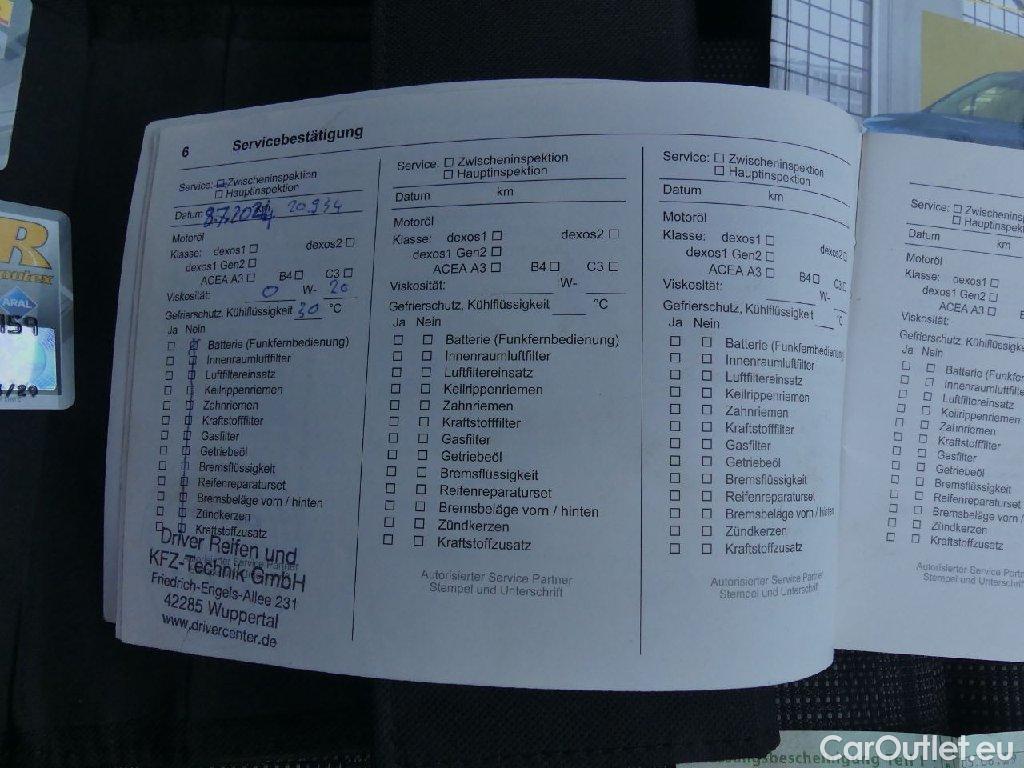 6 Servicebestätigung
Service: ☐ Zwischeninspektion
☐ Hauptinspektion
Datum 20.934
Motoröl
Klasse: dexos1 ☐ dexos2 ☐
dexos1 Gen2 ☐
ACEA A3 ☐ B4 ☐ C3 ☐
Viskosität: 0 W- 20
Gefrierschutz, Kühlflüssigkeit 30 °C
Ja Nein
☐ ☐ Batterie (Funkfernbedienung)
☐ ☐ Innenraumluftfilter
☐ ☐ Luftfiltereinsatz
☐ ☐ Keilrippenriemen
☐ ☐ Zahnriemen
☐ ☐ Kraftstofffilter
☐ ☐ Gasfilter
☐ ☐ Getriebeöl
☐ ☐ Bremsflüssigkeit
☐ ☐ Reifenreparaturset
☐ ☐ Bremsbeläge vorn / hinten
☐ ☐ Zündkerzen
☐ ☐ Kraftstoffzusatz
Driver Reifen und
KFZ-Technik GmbH
Friedrich-Engels-Allee 231
42285 Wuppertal
www.drivercenter.de
Service: ☐ Zwischeninspektion
☐ Hauptinspektion
Datum km
Motoröl
Klasse: dexos1 ☐ dexos2 ☐
dexos1 Gen2 ☐
ACEA A3 ☐ B4 ☐ C3 ☐
Viskosität: W-
Gefrierschutz, Kühlflüssigkeit °C
Ja Nein
☐ ☐ Batterie (Funkfernbedienung)
☐ ☐ Innenraumluftfilter
☐ ☐ Luftfiltereinsatz
☐ ☐ Keilrippenriemen
☐ ☐ Zahnriemen
☐ ☐ Kraftstofffilter
☐ ☐ Gasfilter
☐ ☐ Getriebeöl
☐ ☐ Bremsflüssigkeit
☐ ☐ Reifenreparaturset
☐ ☐ Bremsbeläge vorn / hinten
☐ ☐ Zündkerzen
☐ ☐ Kraftstoffzusatz
Autorisierter Service Partner
Stempel und Unterschrift
Service: ☐ Zwischeninspektion
☐ Hauptinspektion
Datum km
Motoröl
Klasse: dexos1 ☐ dexos2 ☐
dexos1 Gen2 ☐
ACEA A3 ☐ B4 ☐ C3 ☐
Viskosität: W-
Gefrierschutz, Kühlflüssigkeit °C
Ja Nein
☐ ☐ Batterie (Funkfernbedienung)
☐ ☐ Innenraumluftfilter
☐ ☐ Luftfiltereinsatz
☐ ☐ Keilrippenriemen
☐ ☐ Zahnriemen
☐ ☐ Kraftstofffilter
☐ ☐ Gasfilter
☐ ☐ Getriebeöl
☐ ☐ Bremsflüssigkeit
☐ ☐ Reifenreparaturset
☐ ☐ Bremsbeläge vorn / hinten
☐ ☐ Zündkerzen
☐ ☐ Kraftstoffzusatz
Autorisierter Service Partner
Stempel und Unterschrift
Service: ☐ Zwischeninsp
☐ Hauptinspekt
Datum km
Motoröl
Klasse: dexos1 ☐
dexos1 Gen2 ☐
ACEA A3 ☐
Viskosität:
Gefrierschutz, Kühlflüssigke
Ja Nein
☐ ☐ Batterie (Funkfern
☐ ☐ Innenraumluftfilte
☐ ☐ Luftfiltereinsatz
☐ ☐ Keilrippenriemen
☐ ☐ Zahnriemen
☐ ☐ Kraftstofffilter
☐ ☐ Gasfilter
☐ ☐ Getriebeöl
☐ ☐ Bremsflüssigkeit
☐ ☐ Reifenreparaturset
☐ ☐ Bremsbeläge vorn /
☐ ☐ Zündkerzen
☐ ☐ Kraftstoffzusatz
Autorisierter Service Partner
Stempel und Unterschrift
R
ARAL
159
CarOutlet.eu